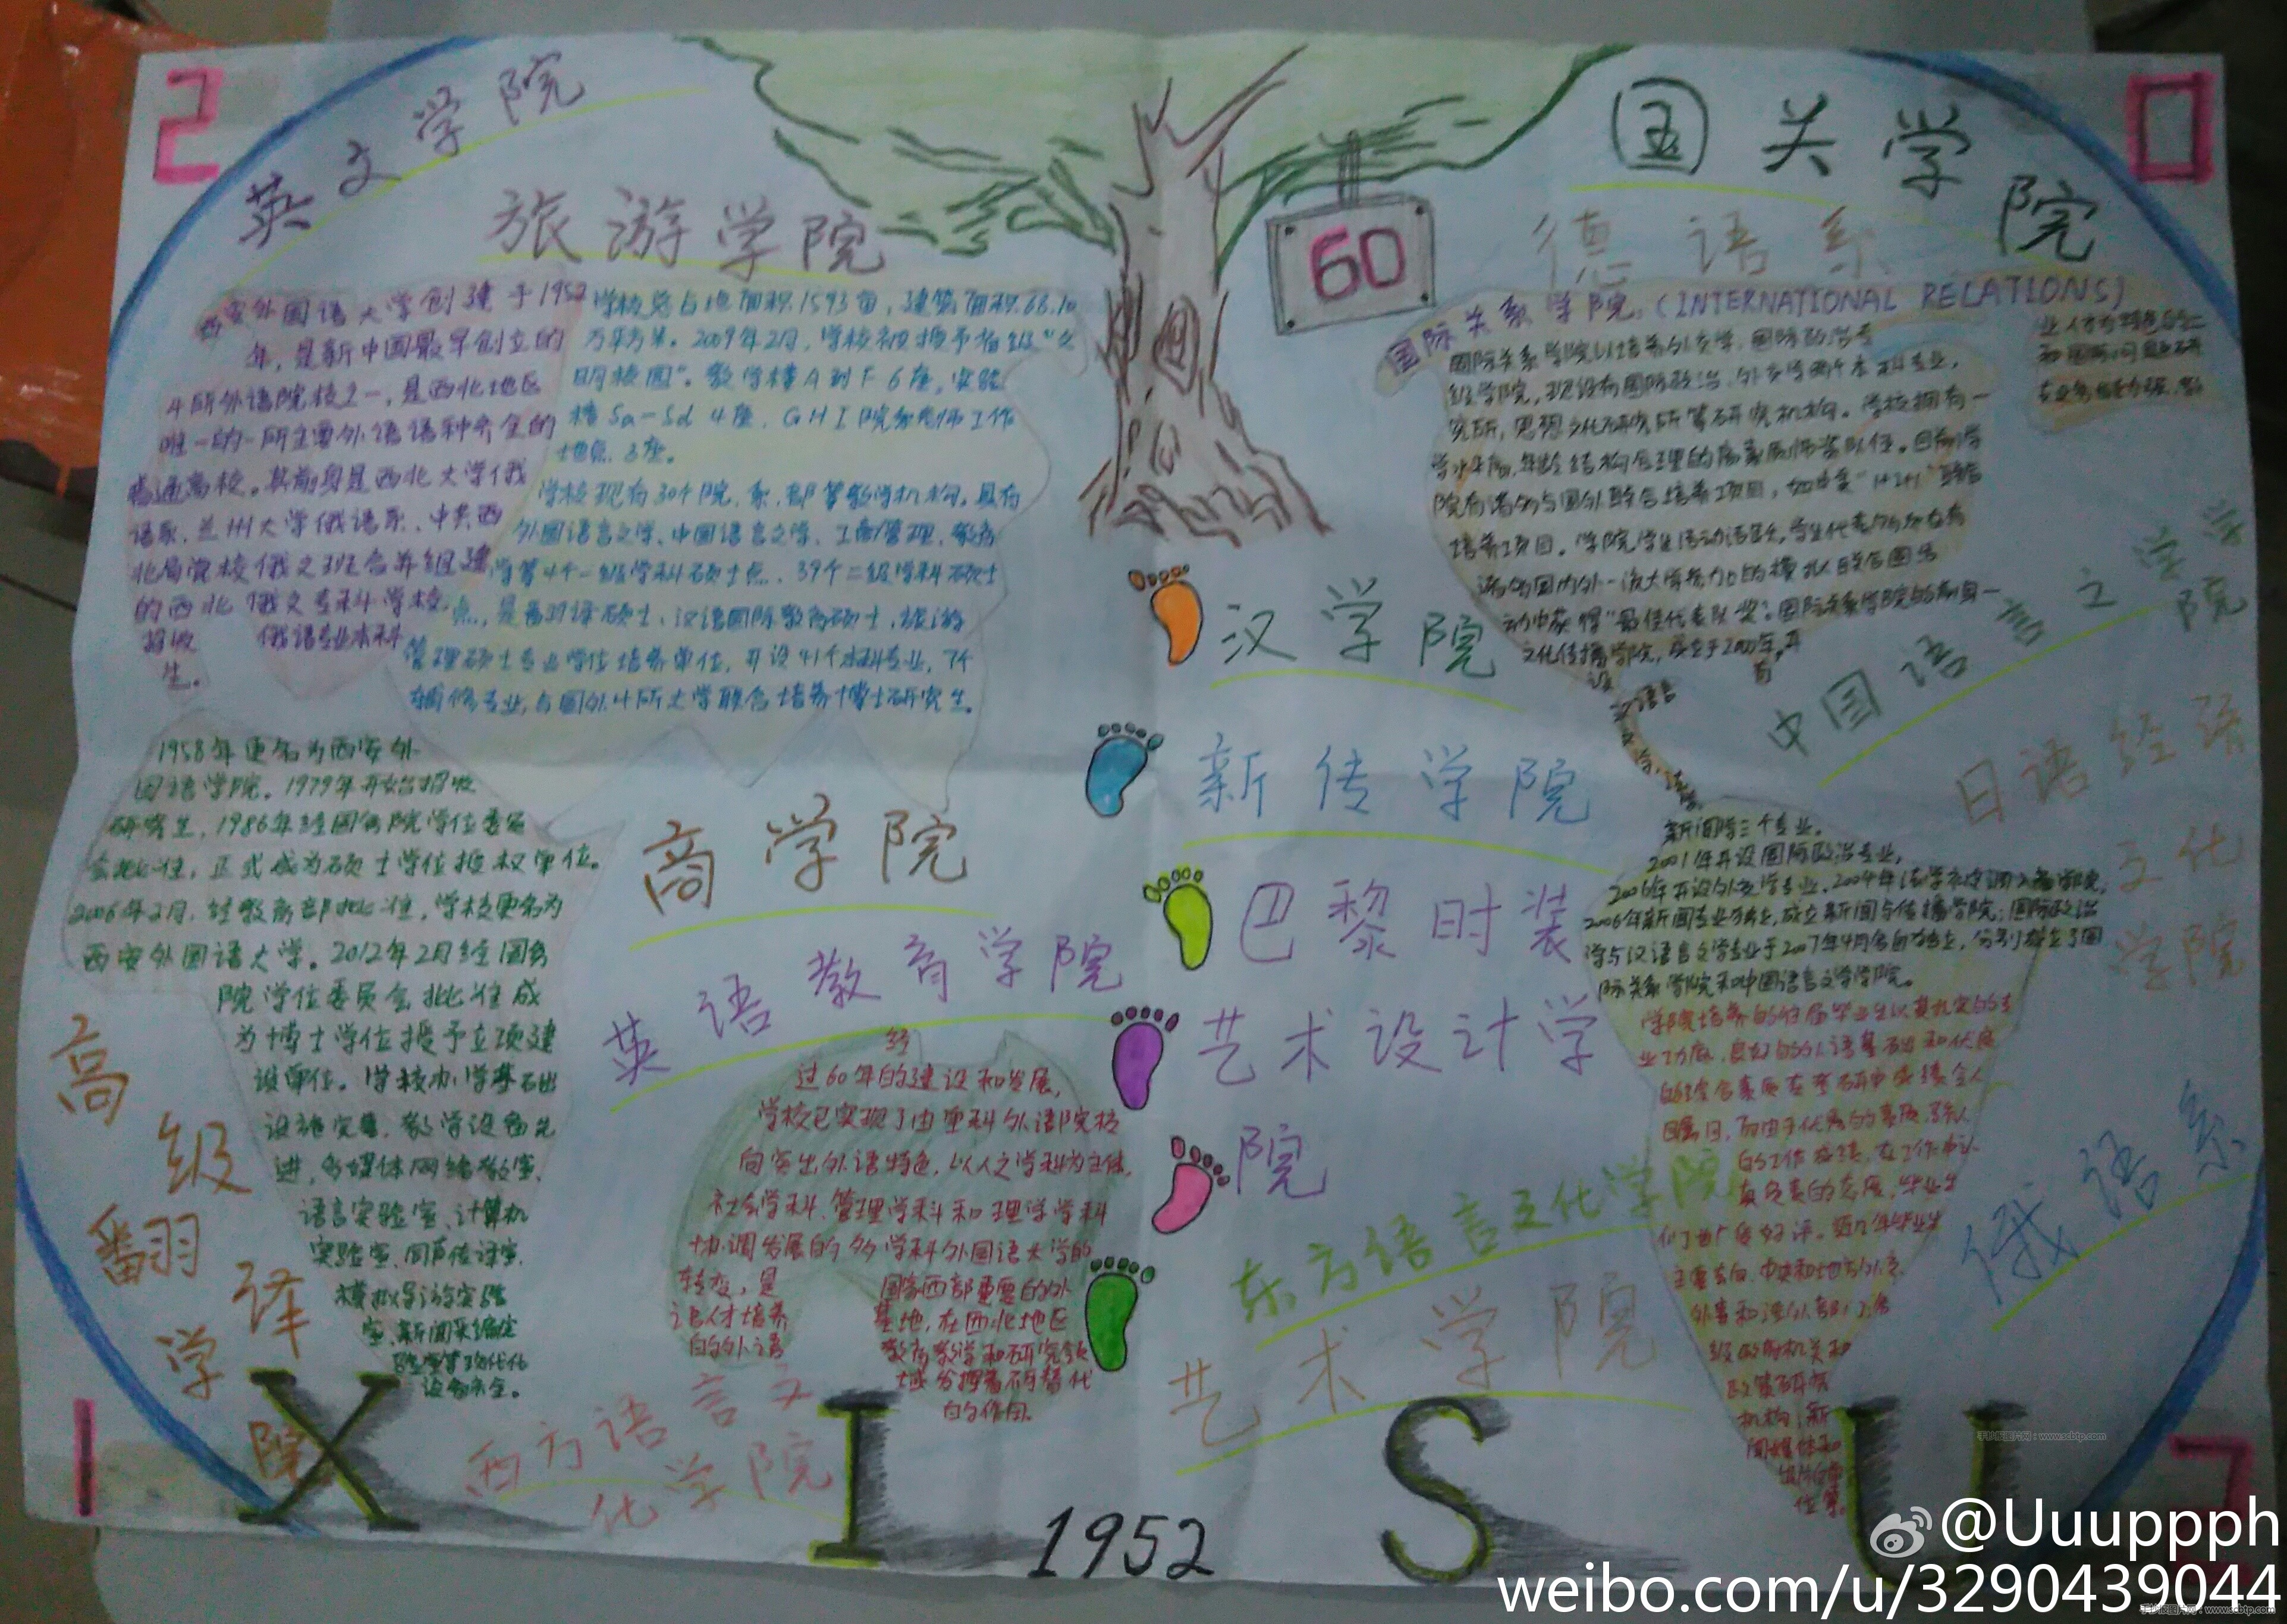 2
0
英文学院
旅游学院
国关学院
德语系
60
西安外国语大学创建于1952
年，是新中国最早创立的
4所外语院校之一，是西北地区
唯一的一所主要外语语种齐全的
普通高校。其前身是西北大学俄
语系、兰州大学俄语系、中共西
北局党校俄文班合并组建
的西北俄文专科学校，
招收 俄语专业本科
生。
学校总占地面积1593亩，建筑面积68.10
万平方米。2009年2月，学校被授予省级“文
明校园”。教学楼A到F 6座，实验
楼Sa-Sd 4座，GHI院系老师工作
地点 3座。
学校现有30个院、系、部等教学机构。具有
外国语言文学、中国语言文学、工商管理、教育
学等4个一级学科硕士点，39个二级学科硕士
点，是翻译硕士、汉语国际教育硕士、旅游
管理硕士专业学位培养单位，开设41个本科专业，7个
辅修专业，与国外4所大学联合培养博士研究生。
国际关系学院（INTERNATIONAL RELATIONS）
国际关系学院以培养外交学、国际政治专
经学院，现设有国际政治、外交学两个本科专业，
究所，思想文化研究所等研究机构。学校拥有一
学水平高，年龄结构合理的高素质师资队伍。目前学
院有诸多与国外联合培养项目，如 “1+2+1”联合
培养项目。学院学生活动活跃，学生代表多次在有
诸多国内外一流大学参加的模拟联合国活
动中获得“最佳代表队奖”。国际关系学院的前身—
文化传播学院，成立于2000年，开
设
有
汉语言
新闻学三个专业。
2001年开设国际政治专业，
2006年开设外交学专业，2004年法学社
2006年新闻专业独立，成立新闻与传播学院；国际政治
学与汉语言文学专业于2007年4月各自独立，分别成立了国
际关系学院和中国语言文学学院。
学院培养的历届毕业生以其扎实的专
业功底，良好的外语基础和优良
的综合素质在考研中成绩令人
瞩目，而由于优秀的素质，
的工作成绩，在工作中认
真负责的态度，毕业生
们广受好评。近几年毕业生
主要去向：中央和地方外交、
外事和涉外部门、各
级政府机关和
政策研究
机构、新
闻媒体和
出版
位等。
汉学院
新传学院
巴黎时装
艺术设计学
院
中国语言文学学
院
日语经语
文化
学院
俄语系
东方语言文化学院
艺术学院
商学院
英语教育学院
1958年更名为西安外
国语学院。1979年开始招收
研究生，1986年经国务院学位委员
会批准，正式成为硕士学位授权单位。
2006年2月，经教育部批准，学校更名为
西安外国语大学。2012年2月经国务
院学位委员会批准成
为博士学位授予立项建
设单位。学校办学基础
设施完善，教学设备先
进，多媒体网络教室、
语言实验室、计算机
实验室、同声传译室、
模拟导游实验
室、新闻采编实
验室等现代化
设备齐全。
经
过60年的建设和发展，
学校已实现了由单科外语院校
向突出外语特色，以人文学科为主体，
社会学科、管理学科和理学学科
协调发展的多学科外国语大学的
转变，是 国家西部重要的外
语人才培养 基地，在西北地区
的外语 教育教学和研究领
域发挥着不可替代
的作用。
高级翻译学院
西方语言文
化学院
1
2
X I S U
1952
手抄报图片网：www.scbtp.com
@Uuuppph
weibo.com/u/3290439044
手抄报图片网：www.scbtp.com